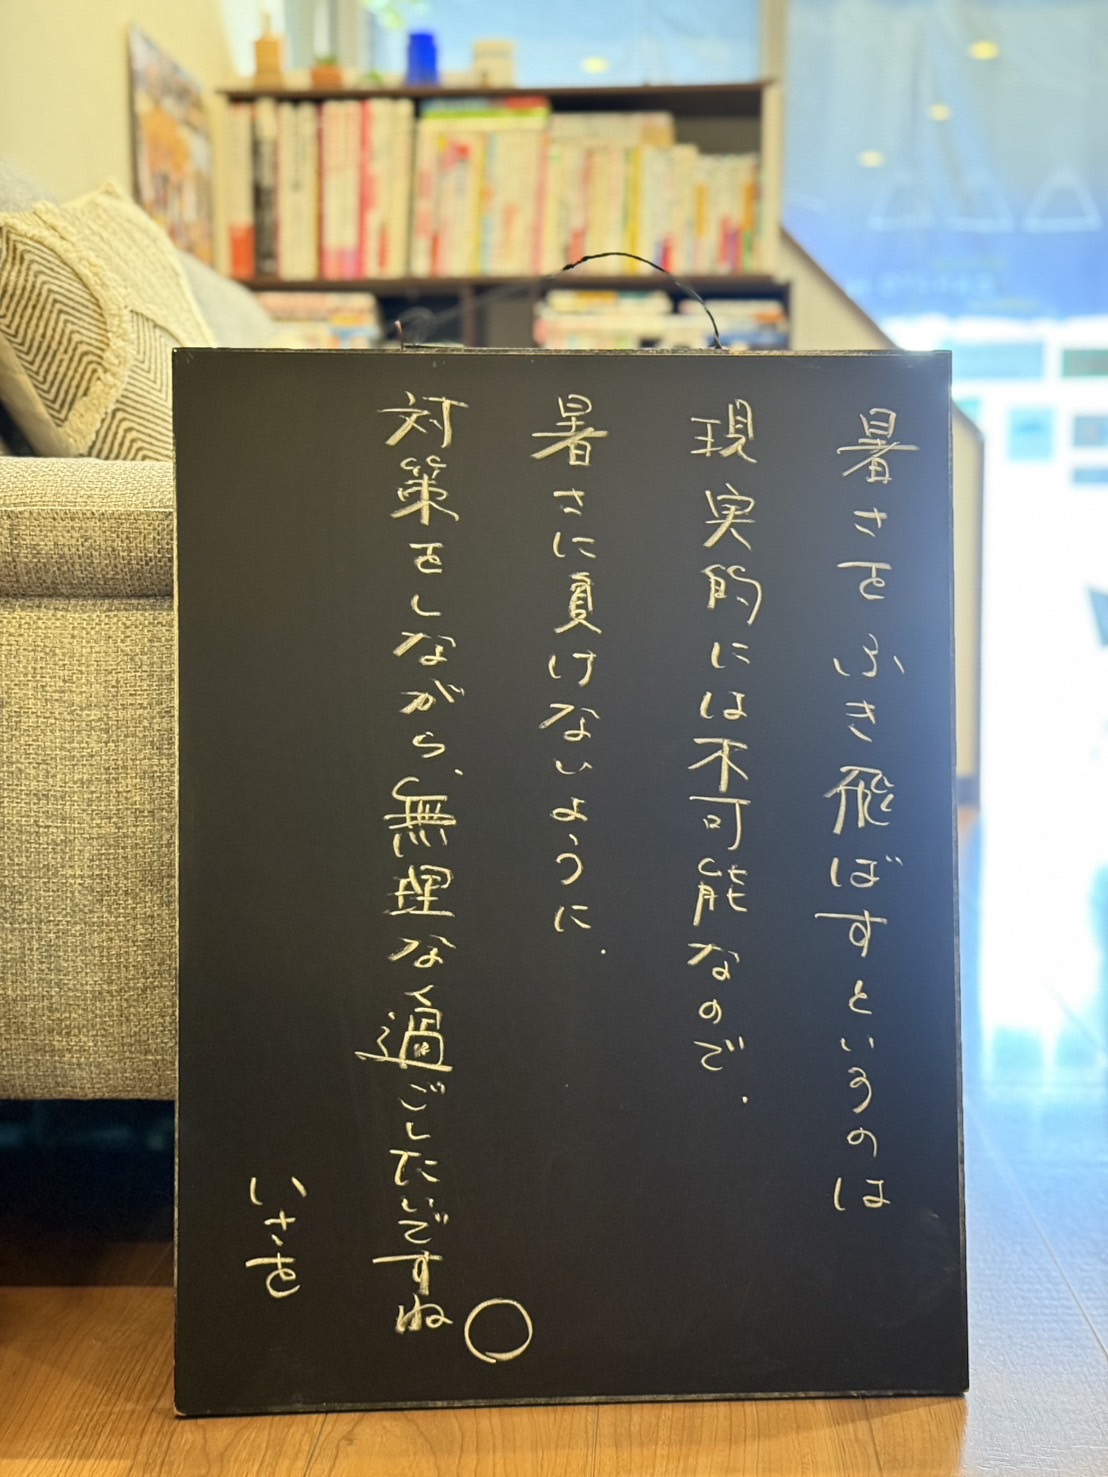 暑さをふき飛ばすというのは
現実的には不可能なので、
暑さに負けないように、
対策をしながら、無理なく過ごしたいですね。
いさを